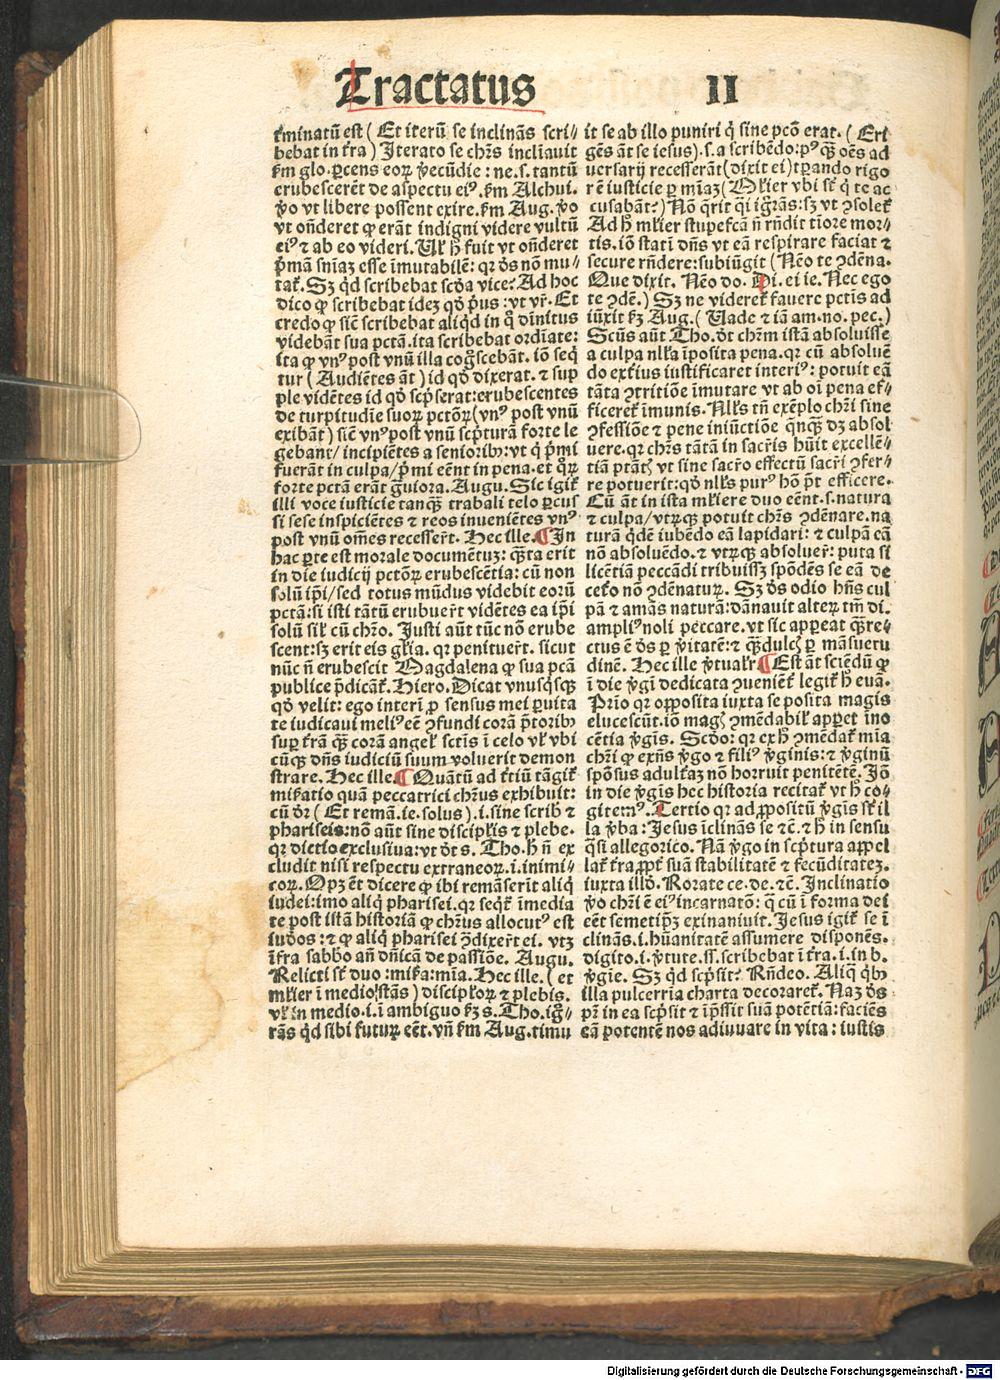 Tractatus II
t̃minatũ est ( Et iterũ se inclinãs scri⸗
bebat in t̃ra ) Iterato se chr̃s incliauit
ẜm glo. ꝑcens eoꝝ ṽecũdie : ne .s. tantũ
erubescerẽt de aspectu eiꝰ. ẜm Alchui.
ṽo vt libere possent exire. ẜm Aug. ṽo
vt oñderet ꝙ erãt indigni videre vultũ
eiꝰ ⁊ ab eo videri. Ul̃ h̃ fuit vt oñderet
p̃mã sñiaʒ esse ĩmutabilẽ: qꝛ ds̃ nõ mu⸗
tat̃. Sʒ qd̃ scribebat scd̃a vice? Ad hoc
dico ꝙ scribebat idez qd̃ p̃us : vt vr̃. Et
credo ꝙ sic̃ scribebat aliqd̃ in q̃ diuinitus
videbãt sua pctã. ita scribebat ordĩate:
ita ꝙ vnꝰ post vnũ illa cog̃scebãt. iõ seq̃
tur ( Audiẽtes ãt ) id qd̃ dixerat. ⁊ sup
ple vidẽtes id qd̃ sc̃pserat: erubescentes
de turpitudĩe suoꝝ pctõꝝ ( vnꝰ post vnũ
exibãt ) sic̃ vnꝰ post vnũ sc̃pturã forte le
gebant / incipiẽtes a seniorib̃: vt q̃ p̃mi
fuerãt in culpa / p̃mi eẽnt in pena. et q̃ꝝ
forte pctã erãt g̃uiora. Augu. Sic igit̃
illi voce iusticie tanqʒ trabali telo ꝑcus
si sese inspiciẽtes ⁊ reos inueniẽtes vnꝰ
post vnũ om̃es recesser̃t. Hec ille. ¶ In
hac ꝑte est morale documẽtuʒ: q̃ta erit
in die iudicij pctõꝝ erubescẽtia: cũ non
solũ ip̃i / sed totus mũdus videbit eorũ
pctã: si isti tãtũ erubuer̃t vidẽtes ea ip̃i
solũ sil̃ cũ chr̃o. Iusti aũt tũc nõ erube
scent: sʒ erit eis gl̃ia. qꝛ penituer̃t. sicut
nũc ñ erubescit Magdalena ꝙ sua pctã
publice p̃dicãt̃. Hiero. Dicat vnusqʒqʒ
qd̃ velit: ego interĩ ꝓ sensus mei ꝑuita
te iudicaui meliꝰ eẽ ↄfundi corã p̃torib̃
suꝑ t̃rã qʒ corã angel̃ sctĩs ĩ celo vl̃ vbi
cũqʒ dñs iudiciũ suum voluerit demon
strare. Hec ille. ¶ Quãtũ ad t̃tiũ tãgit̃
mis̃atio quã peccatrici chr̃us exhibuit:
cũ dr̃ ( Et remã. ie. solus ) .i. sine scrib̃ ⁊
phariseis: nõ aũt sine discipl̃is ⁊ plebe.
qꝛ dictio exclusiua: vt dt̃ s. Tho. h̃ ñ ex
cludit nisi respectu extraneoꝝ .i. inimi⸗
coꝝ. Opʒ eĩ dicere ꝙ ibi remãserĩt aliq̃
iudei: imo aliq̃ pharisei. qꝛ seqt̃ ĩmedia
te post istã historiã ꝙ chr̃us allocutꝰ est
iudẽos : ⁊ ꝙ aliq̃ pharisei ↄ̃dixer̃t ei. vtʒ
ĩfra sabb̃o añ dñicã de passiõe. Augu.
Relicti st̃ duo : mis̃a : mĩa. Hec ille. ( et
ml̃ier ĩ medio stãs ) discipl̃oꝝ ⁊ plebis.
vl̃ in medio .i. ĩ ambiguo ẜʒ s. Tho. ig̃⸗
rãs qd̃ sibi futuꝝ eẽt. vñ ẜm Aug. timu
it se ab illo puniri q̃ sine pcõ erat. ( Eri
gẽs ãt se iesus ) .s. a scribẽdo: pꝰqʒ oẽs ad
uersarij recesserãt ( dixit ei ) tꝑando rigo
rẽ iusticie ꝑ mĩaʒ ( Ml̃ier vbi st̃ q̃ te ac
cusabãt? ) Nõ q̃rit q̃i ig̃rãs: sʒ vt ↄsolet̃
Ad h̃ ml̃ier stupefcã ñ rñdit tĩore mor⸗
tis. iõ statĩ dñs vt eã respirare faciat ⁊
secure rñdere: subiũgit ( Nẽo te ↄdẽna.
Que dixit. Nẽo do. Di. ei ie. Nec ego
te ↄdẽ. ) Sʒ ne videret̃ fauere pctĩs ad
iũxit ẜʒ Aug. ( Uade ⁊ iã am. no. pec. )
Scũs aũt Tho. dt̃ chr̃m istã absoluisse
a culpa nl̃la ĩposita pena. qꝛ cũ absoluẽ
do ext̃ius iustificaret interiꝰ: potuit eã
tãta ↄtritiõe ĩmutare vt ab oĩ pena ef⸗
ficeret̃ ĩmunis. Nl̃ls tñ exẽplo chr̃i sine
ↄfessiõe ⁊ pene iniũctiõe qnqʒ dʒ absol
uere. qꝛ chr̃s tãtã in sacr̃is hũit excellẽ⸗
tiã ptãtʒ vt sine sacr̃o effectũ sacr̃i ↄfer⸗
re potuerit: qd̃ nl̃ls purꝰ hõ p̃t efficere.
Cũ ãt in ista ml̃iere duo eẽnt .s. natura
⁊ culpa / vtꝝqʒ potuit chr̃s ↄdẽnare. na
turã qd̃ẽ iubẽdo eã lapidari: ⁊ culpã eã
nõ absoluẽdo. ⁊ vtꝝqʒ absoluer̃: puta si
licẽtiã peccãdi tribuissʒ spõdẽs se eã de
cet̃o nõ ↄdẽnatuꝝ. Sʒ ds̃ odio hñs cul
pã ⁊ amãs naturã: dãnauit alteꝝ tm̃ di.
ampliꝰ noli peccare. vt sic appeat qʒ re⸗
ctus ẽ ds̃ ꝑ ṽitatẽ: ⁊ qʒ dulcʒ ꝑ mãsuetu
dinẽ. Hec ille ṽtualr̃ ¶ Est ãt sciẽdũ ꝙ
ĩ die ṽgĩ dedicata ↄueniẽt̃ legit̃ h̃ euã.
Prĩo qꝛ opposita iuxta se posita magis
elucescũt. iõ magʒ ↄmẽdabil̃ appet ĩno
cẽtia ṽgĩs. Scdo: qꝛ ex h̃ ↄmẽdat̃ mĩa
chr̃i ꝙ exñs ṽgo ⁊ filiꝰ ṽginis: ⁊ ṽginũ
spõsus adult̃aʒ nõ horruit penitẽtẽ. Iõ
in die ṽgĩs hec historia recitat̃ vt h̃ co⸗
gitemꝰ. Tertio qꝛ ad ꝓpositũ ṽgĩs st̃ il
la ṽba : Iesus ĩclinãs se ⁊c̃. ⁊ h̃ in sensu
q̃si allegorico. Nã ṽgo in sc̃ptura appel
lat̃ t̃ra ꝓpt̃ suã stabilitatẽ ⁊ fecũditateʒ.
iuxta illd̃. Rorate ce. de. ⁊c̃. Inclinatio
ṽo chr̃i ẽ eiꝰ incarnatõ: q̃ cũ ĩ forma dei
eẽt semetip̃ʒ exinaniuit. Iesus igit̃ se ĩ
clinãs .i. hũanitatẽ assumere disponẽs.
digito .i. ṽtute .ss. scribebat ĩ t̃ra .i. in b.
ṽgĩe. Sʒ qd̃ sc̃psit? Rñdeo. Aliq̃ q̃b̃
illa pulcerrĩa charta decoraret̃. Naʒ ds̃
pr̃ in ea sc̃psit ⁊ ĩp̃ssit suã potẽtiã: faciẽs
eã potentẽ nos adiuuare in vita : iustis